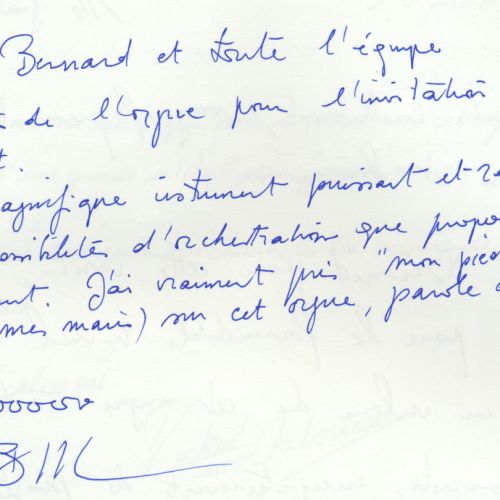 Bernard et toute l'équipe
de l'orgue pour l'invitation
t.
agnifique instrument puissant et
ossibilités d'orchestration que propo
ent. J'ai vraiment pris "mon pied
mes mains) sur cet orgue, parole d
ooooov